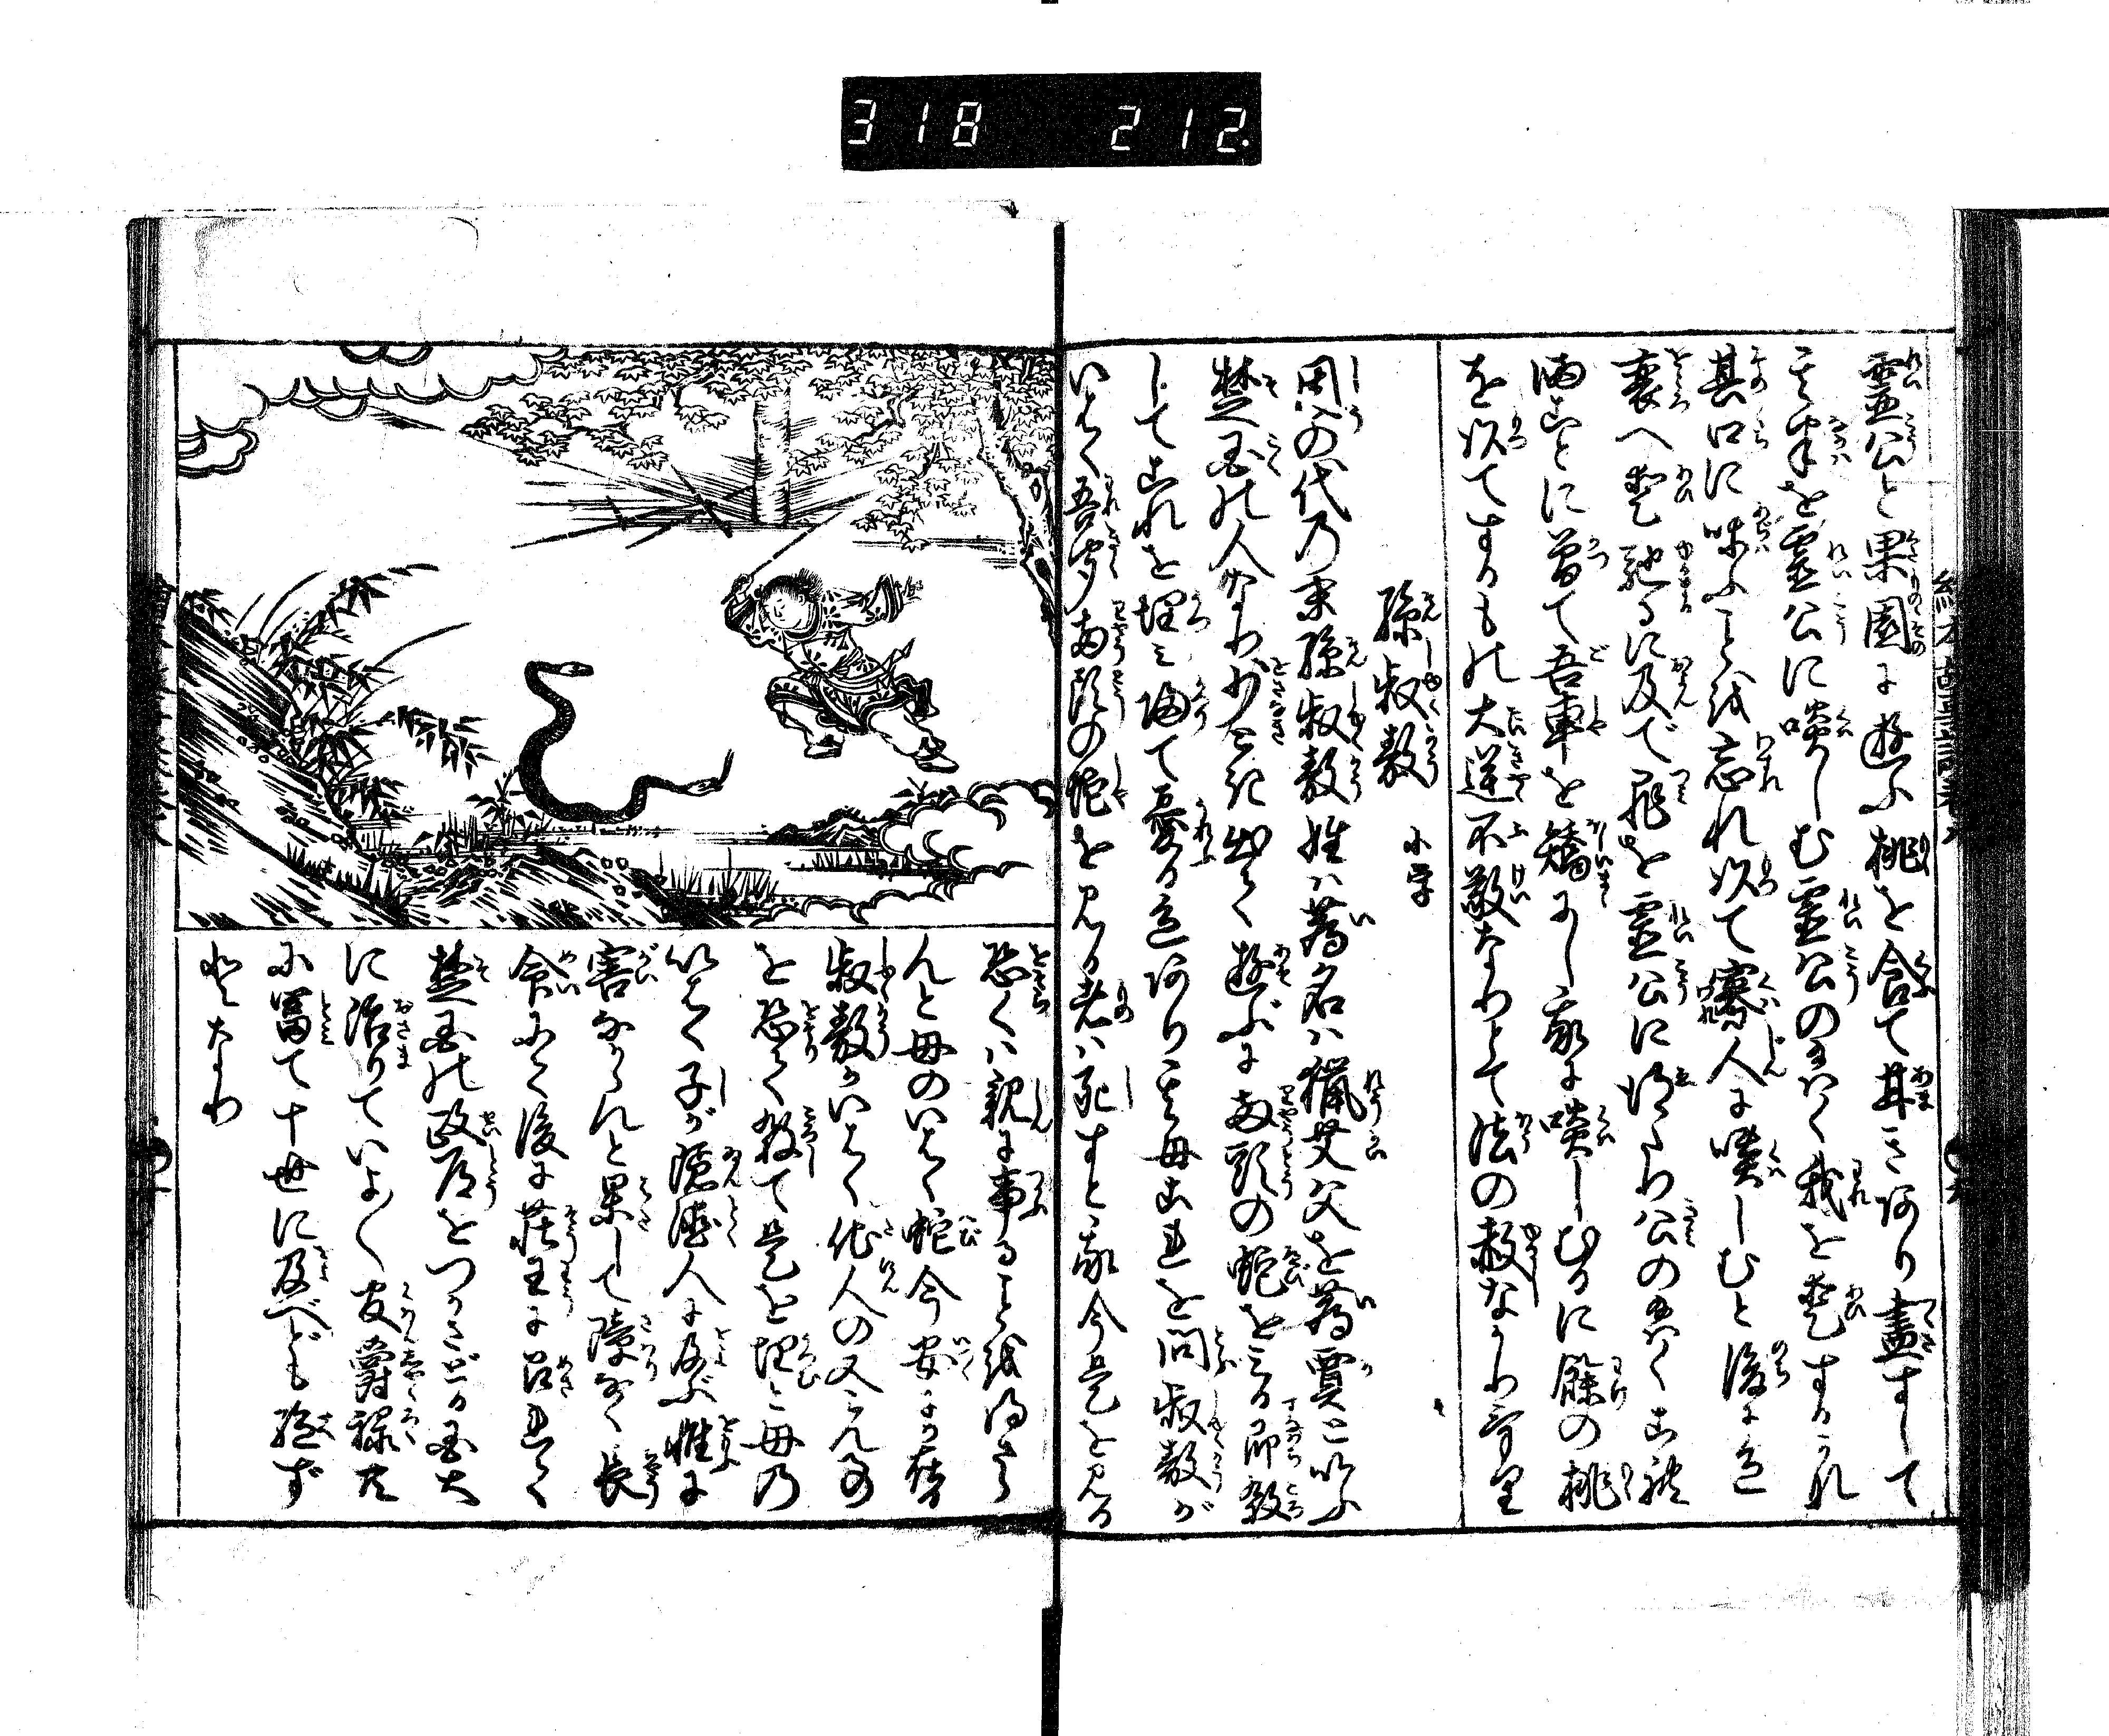 318 212.
霊公と果園に遊ふ桃を含て甘き阿り盡すして
其半を霊公に啖しむ霊公のいはく我を愛するかな
其口に味ふことを忘れ以て寡人に啖しむと後に色
衰へ愛弛るに及で罪を霊公に得たり公のいはく
而ことに曽て吾車を矯にし哉に啖しむるに餘の桃
を以てするもの大逆不敬なりとて法の赦なかりけり
孫叔敖 小学
周の代の末孫叔敖姓は蔿名は猟艾父を蔿賈と以ふ
楚国の人なり少とき出て遊ぶに両頭の蛇をみる即殺
してこれを埋み帰て憂る色阿り其母これを問叔敖が
いはく吾聞両頭の蛇を見る者は死すと哉今是を見る
恐くは親に事ることを得さら
んと母のいはく蛇今安にか在
叔敖かいはく他人の又みん事
を恐て殺て是を埋み母の
いはく子が陰徳人に及ぶ惟に
害なからんと果して障なく長
命にて後に荘王に召れて
楚国の政道をつかさどる国大
に治りていよ〳〵官爵禄大
に富て十世に及べども絶ず
となり